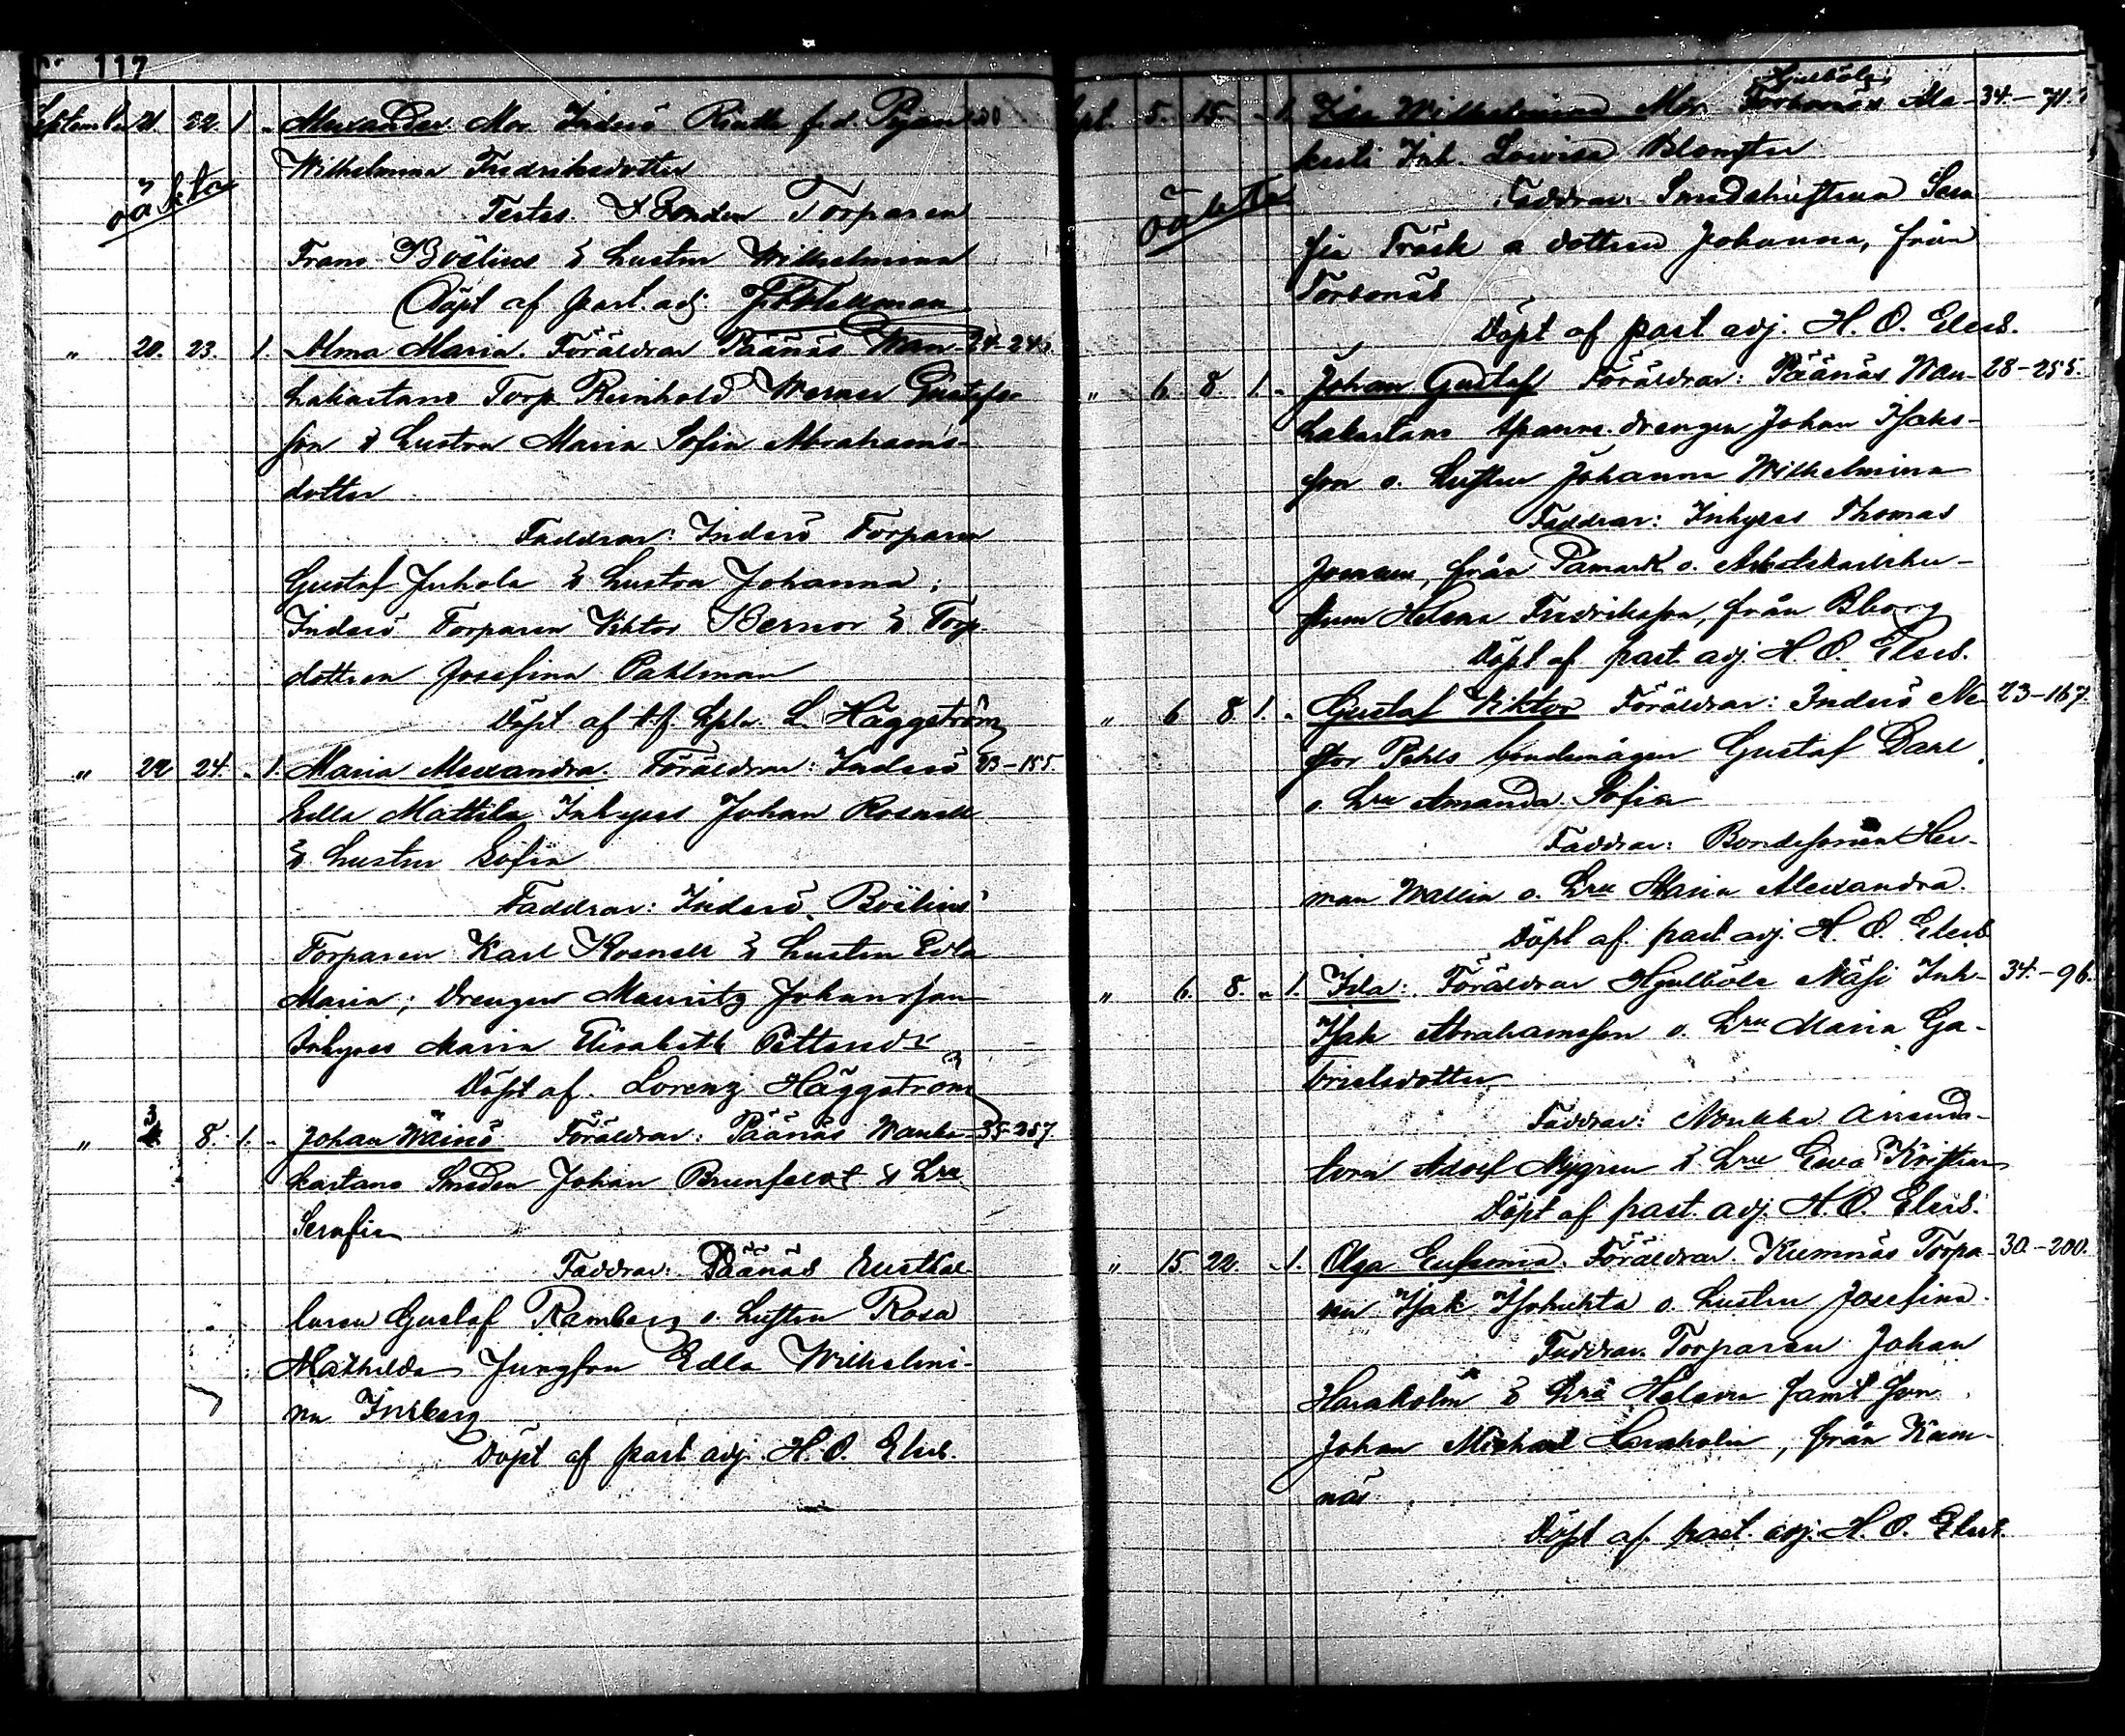 117
September 21. 22. 1 " Alexander Mor Inderö Rintte Pigan
Wilhelmina Fredriksdotter
oäkta
Testes Torparen
Frans Böelius & hustru Wilhelmina
Döpt af past. adj.
" 20. 23. 1. Alma Maria. Föräldrar Päänäs Wan- 24-24
hakartano Torp. Reinhold Werner Gustafs-
son & hustru Maria Sofia Abrahams-
dotter
Faddrar: Inderö Torparen
Gustaf Juhola & hustru Johanna;
Inderö Torparen Viktor Bernor & Torp.
dottren Josefina Pahlman
Döpt af L. Häggström
" 22 24. " 1. Maria Alexandra. Föräldrar: Inderö 23-185.
Mattila Inhyses Johan Rosnell
& hustru Sofia
Faddrar: Inderö, Böelius
Torparen Karl Rosnell & hustru Edla
Maria; Drengen Mauritz Johansson
Inhyses Maria Elisabeth
Döpt af. Lorenz Häggström
" 3 8. 1. " Johan Wäinö Föräldrar: Päänäs Wanha- 35-257.
kartano Smeden Johan Brunfeldt & hru
Serafia
Faddrar: Päänäs
Gustaf Ramberg o. hustru Rosa
Mathilda Jungfru Edla Wilhelmi-
na Insberg
Döpt af past. adj. H. O. Elers.
Sept. 5. 15 " 1. Ida Wilhelmina Mor. Hjulböle Torbonäs Ala- 34.-71.
Inh. Lovisa Blomster
oäkta
Faddrar: Smedshustrun Sera
fia Träsk o dottren Johanna, från
Torbonäs
Döpt af past adj. H. O. Elers.
" 6. 8. 1. " Johan Gustaf Föräldrar: Päänäs Wan- 28-255.
hakartano drengen Johan Isaks-
son o. hustru Johanna Wilhelmina
Faddrar: Inhyses Thomas
från Påmark o. Arbetskarlshu-
strun Helena Fredriksson, från Bborg
Döpt af past. adj. H. O. Elers.
" 6 8 1. " Gustaf Viktor Föräldrar: Inderö Ne- 23-167.
stor Pehls bondemågen Gustaf Dahl
o. hru Amanda Sofia
Faddrar: Bondesonen Her-
man Wallin o. hru Maria Alexandra.
Döpt af past adj. H. O. Elers
" 6. 8. " 1. Ida: Föräldrar Hjulböle Näsi Inh- 34.-96.
Isak Abrahamsson o. hru Maria Ga-
brielsdotter
Faddrar: Noukka Arrenda-
torn Adolf Nygren & hru Eva Kristina
Döpt af past. adj. H. O. Elers.
" 15. 22. " 1. Olga Eufemia. Föräldrar. Kumnäs Torpa- 30.-200.
ren Isak o. hustru Josefina.
Faddrar. Torparen Johan
Haraholm & hru Helena samt son
Johan Michael Haraholm, från Kum-
näs
Döpt af past. adj. H. O. Elers.